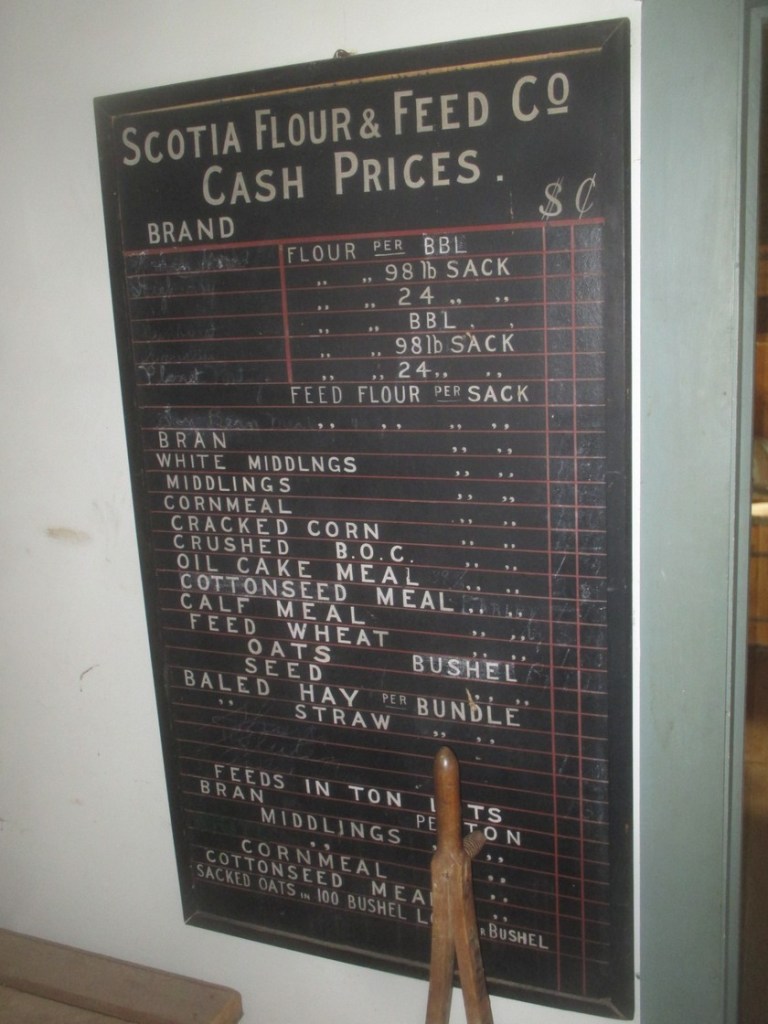 SCOTIA FLOUR & FEED CO
CASH PRICES.
$ ¢
BRAND
FLOUR PER BBL
,, ,, 98 lb SACK
,, ,, 24 ,, ,,
,, ,, BBL , ,
,, ,, 98 lb SACK
,, ,, 24 ,, ,,
FEED FLOUR PER SACK
,, ,, ,, ,,
BRAN ,, ,,
WHITE MIDDLNGS ,, ,,
MIDDLINGS ,, ,,
CORNMEAL ,, ,,
CRACKED CORN ,, ,,
CRUSHED B.O.C. ,, ,,
OIL CAKE MEAL ,, ,,
COTTONSEED MEAL ,, ,,
CALF MEAL ,, ,,
FEED WHEAT ,, ,,
OATS BUSHEL
SEED ,, ,,
BALED HAY PER BUNDLE
,, STRAW ,, ,,
FEEDS IN TON L TS
BRAN PE TON
MIDDLINGS ,, ,,
CORNMEAL ,,
COTTONSEED MEA ,,
SACKED OATS IN 100 BUSHEL L R BUSHEL